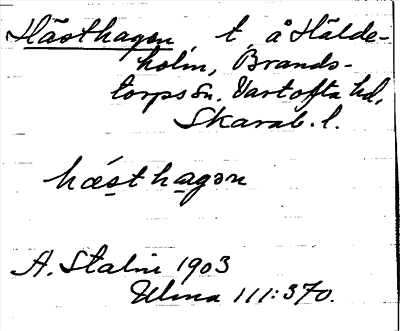 Hästhagen t. å Hälde-
holm, Brands-
torps sn. Vartofta hd,
Skarab. l.
hǽsthagən
A. Stalin 1903
Ulma 111:370.